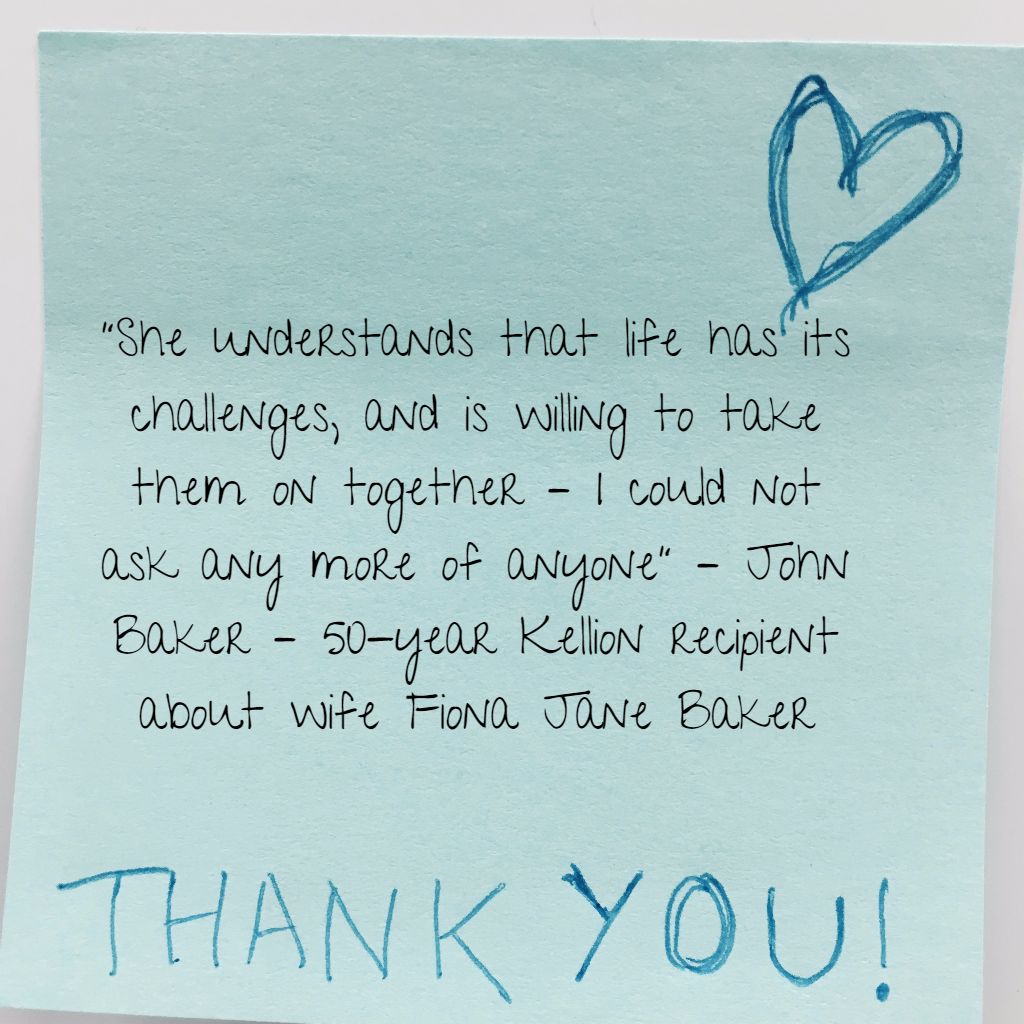 "She understands that life has its
challenges, and is willing to take
them on together - I could not
ask any more of anyone" - John
Baker - 50-year Kellion recipient
about wife Fiona Jane Baker
THANK YOU!